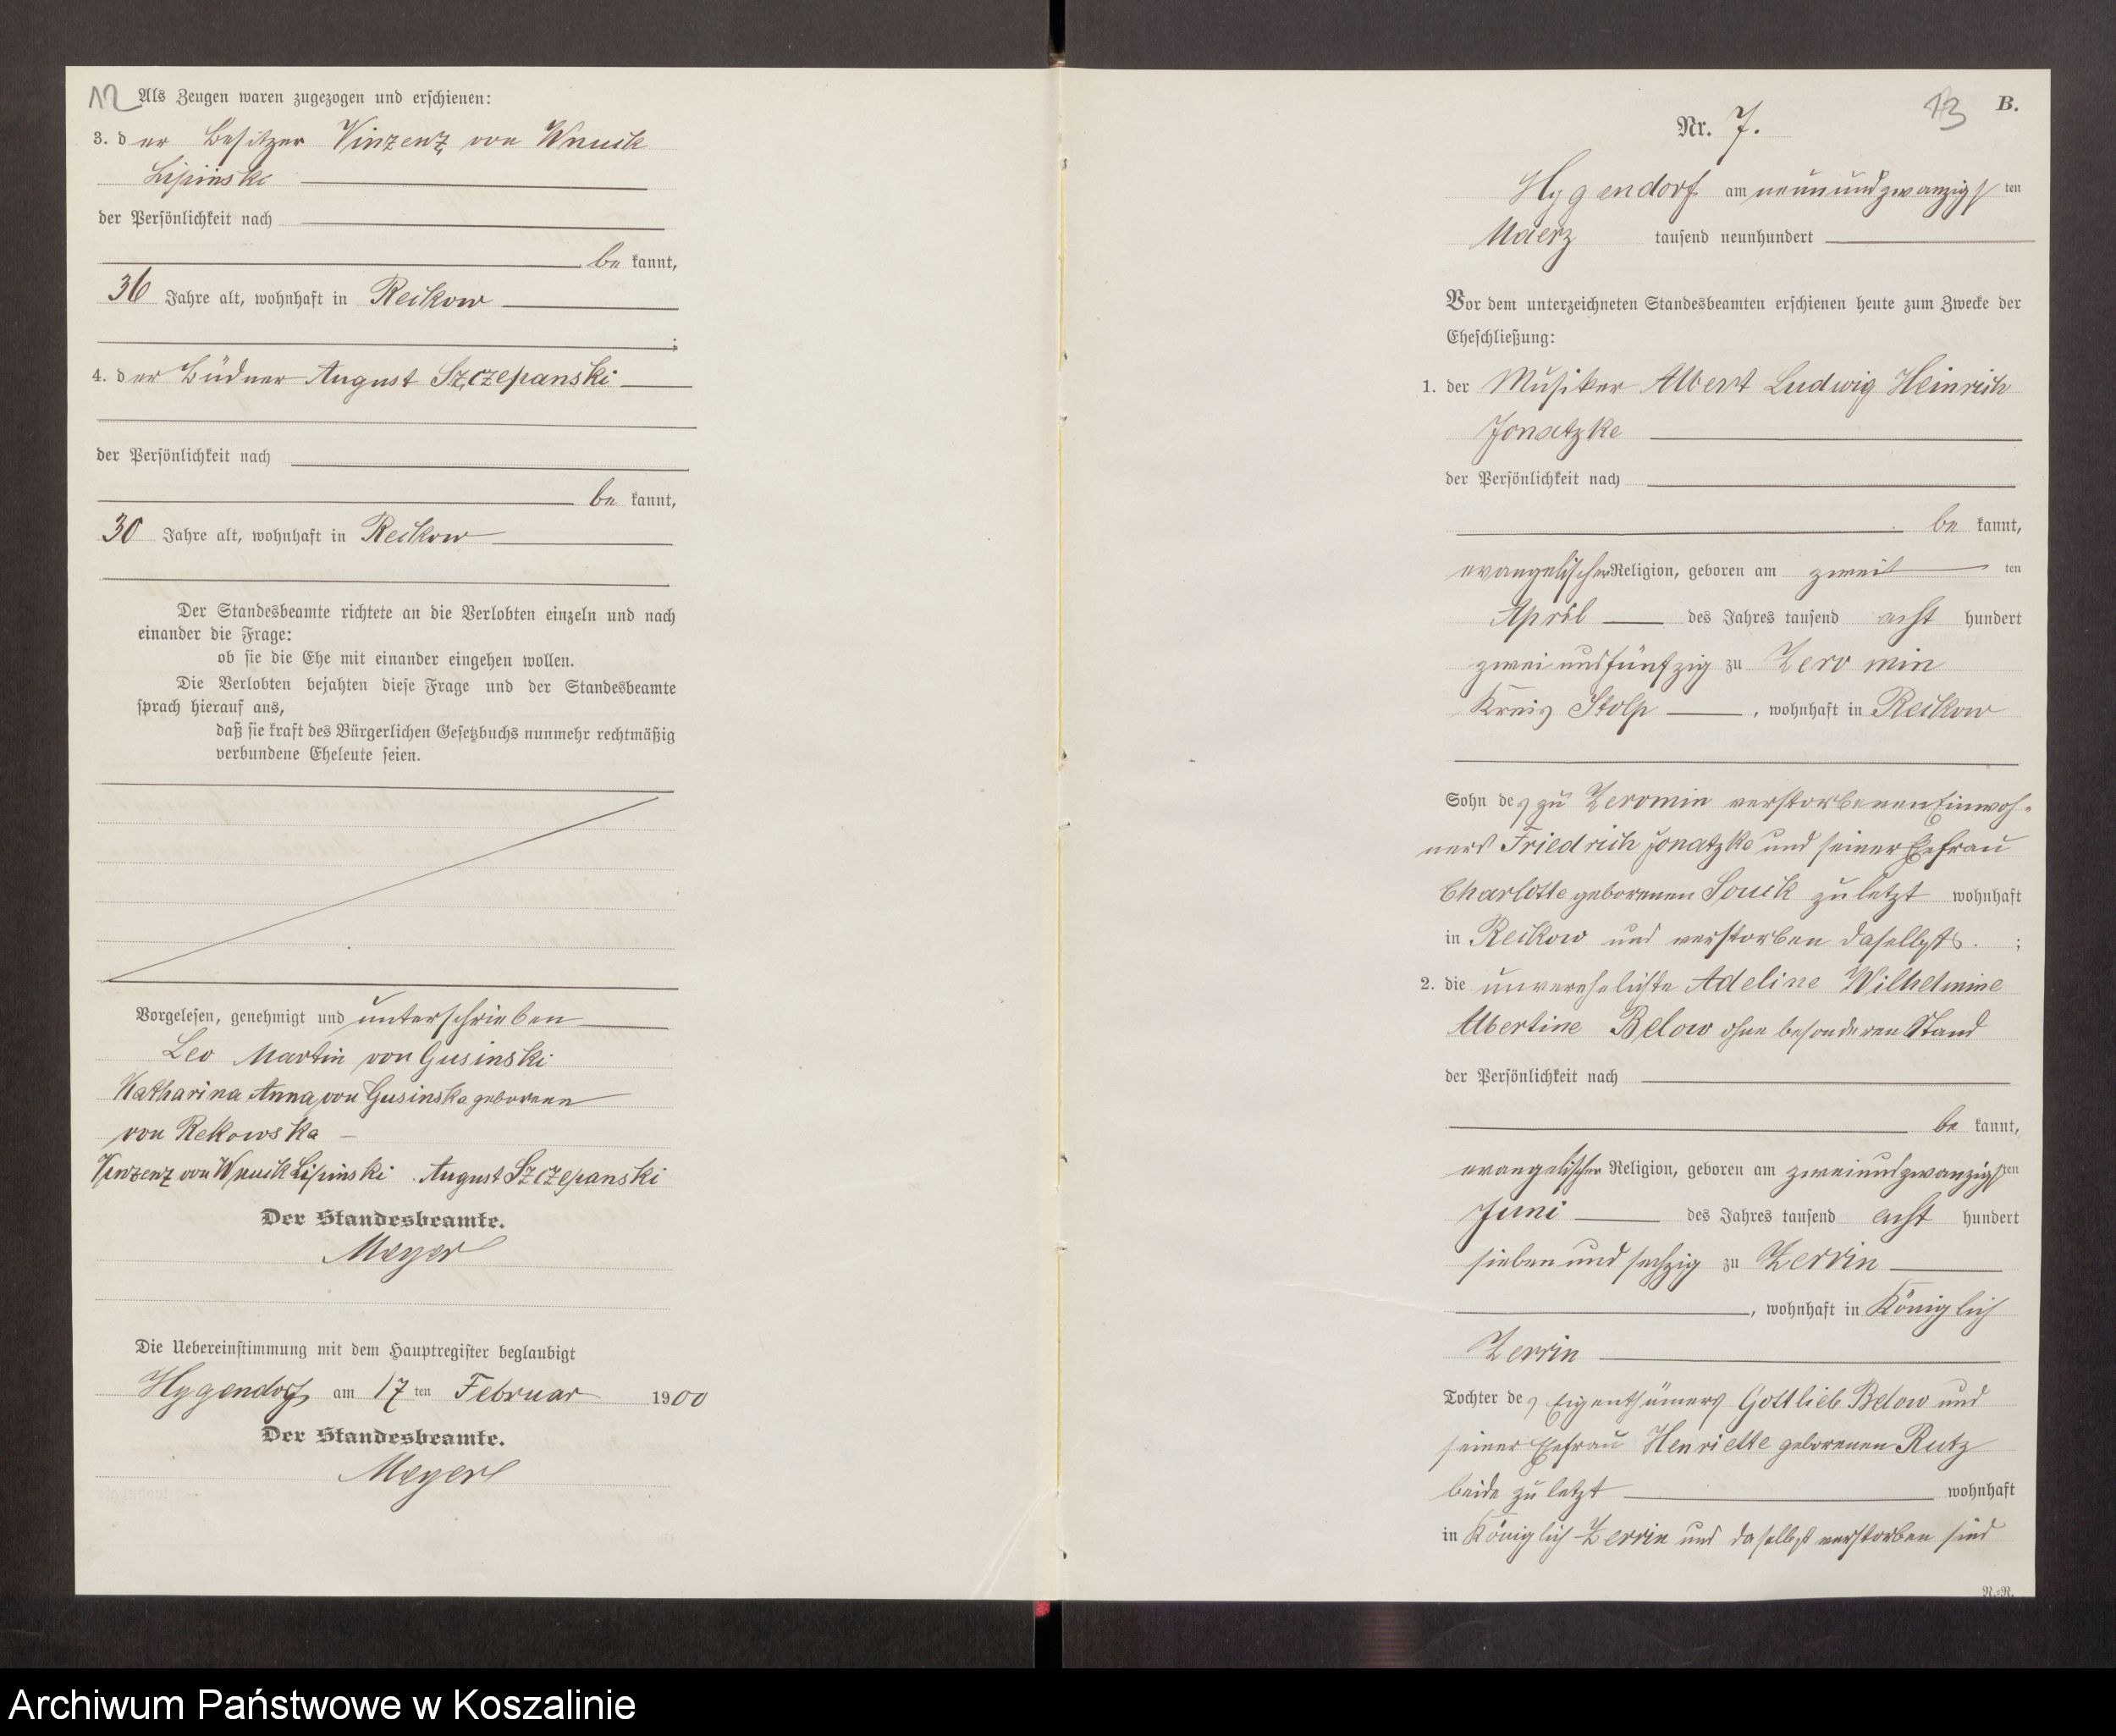 12
Als Zeugen waren zugezogen und erschienen:
3. der Besitzer Vinzenz von Wnuck
Lipinski
der Persönlichkeit nach
be kannt,
36 Jahre alt, wohnhaft in Reckow
;
4. der Büdner August Szczepanski
der Persönlichkeit nach
be kannt,
30 Jahre alt, wohnhaft in Reckow
Der Standesbeamte richtete an die Verlobten einzeln und nach
einander die Frage:
ob sie die Ehe mit einander eingehen wollen.
Die Verlobten bejahten diese Frage und der Standesbeamte
sprach hierauf aus,
daß sie kraft des Bürgerlichen Gesetzbuchs nunmehr rechtmäßig
verbundene Eheleute seien.
Vorgelesen, genehmigt und unterschrieben
Leo Martin von Gusinski
Katharina Anna von Gusinska geborene
von Rekowska
Vinzenz von Wnuck Lipinski August Szczepanski
Der Standesbeamte.
Meyer
Die Uebereinstimmung mit dem Hauptregister beglaubigt
Hygendorf am 17 ten Februar 1900
Der Standesbeamte.
Meyer
13
B.
Nr. 7.
Hygendorf am neunundzwanzigsten
Maerz tausend neunhundert
Vor dem unterzeichneten Standesbeamten erschienen heute zum Zwecke der
Eheschließung:
1. der Musiker Albert Ludwig Heinrich
Jonatzke
der Persönlichkeit nach
be kannt,
evangelischer Religion, geboren am zweit ten
April des Jahres tausend acht hundert
zweiundfünfzig zu Zeromin
Kreis Stolp , wohnhaft in Reckow
Sohn des zu Zeromin verstorbenen Einwoh-
ners Friedrich Jonatzke und seiner Ehefrau
Charlotte geborenen Souck zuletzt wohnhaft
in Reckow und verstorben daselbst. ;
2. die unverehelichte Adeline Wilhelmine
Albertine Below ohne besonderen Stand
der Persönlichkeit nach
be kannt,
evangelischer Religion, geboren am zweiundzwanzigsten
Juni des Jahres tausend acht hundert
siebenundsechzig zu Zerrin
, wohnhaft in Königlich
Zerrin
Tochter des Eigenthümers Gottlieb Below und
seiner Ehefrau Henriette geborenen Rutz
beide zuletzt wohnhaft
in Königlich Zerrin und daselbst verstorben sind
R.-R.
Archiwum Państwowe w Koszalinie